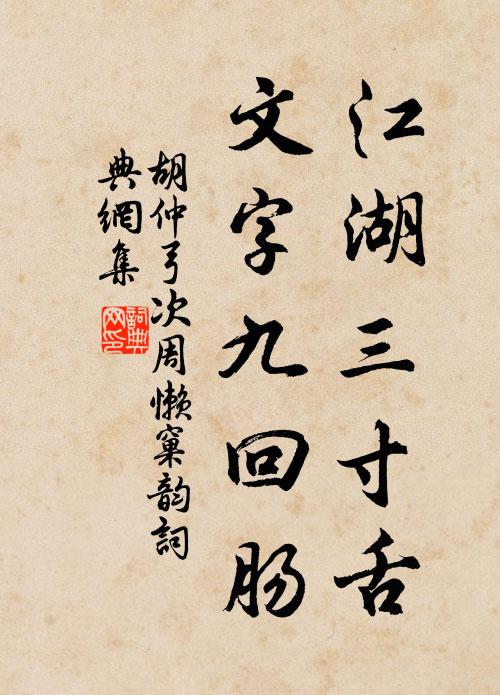 江湖三寸舌
文字九回肠
胡仲弓次周懒窠韵詞
典網集
詞典網印